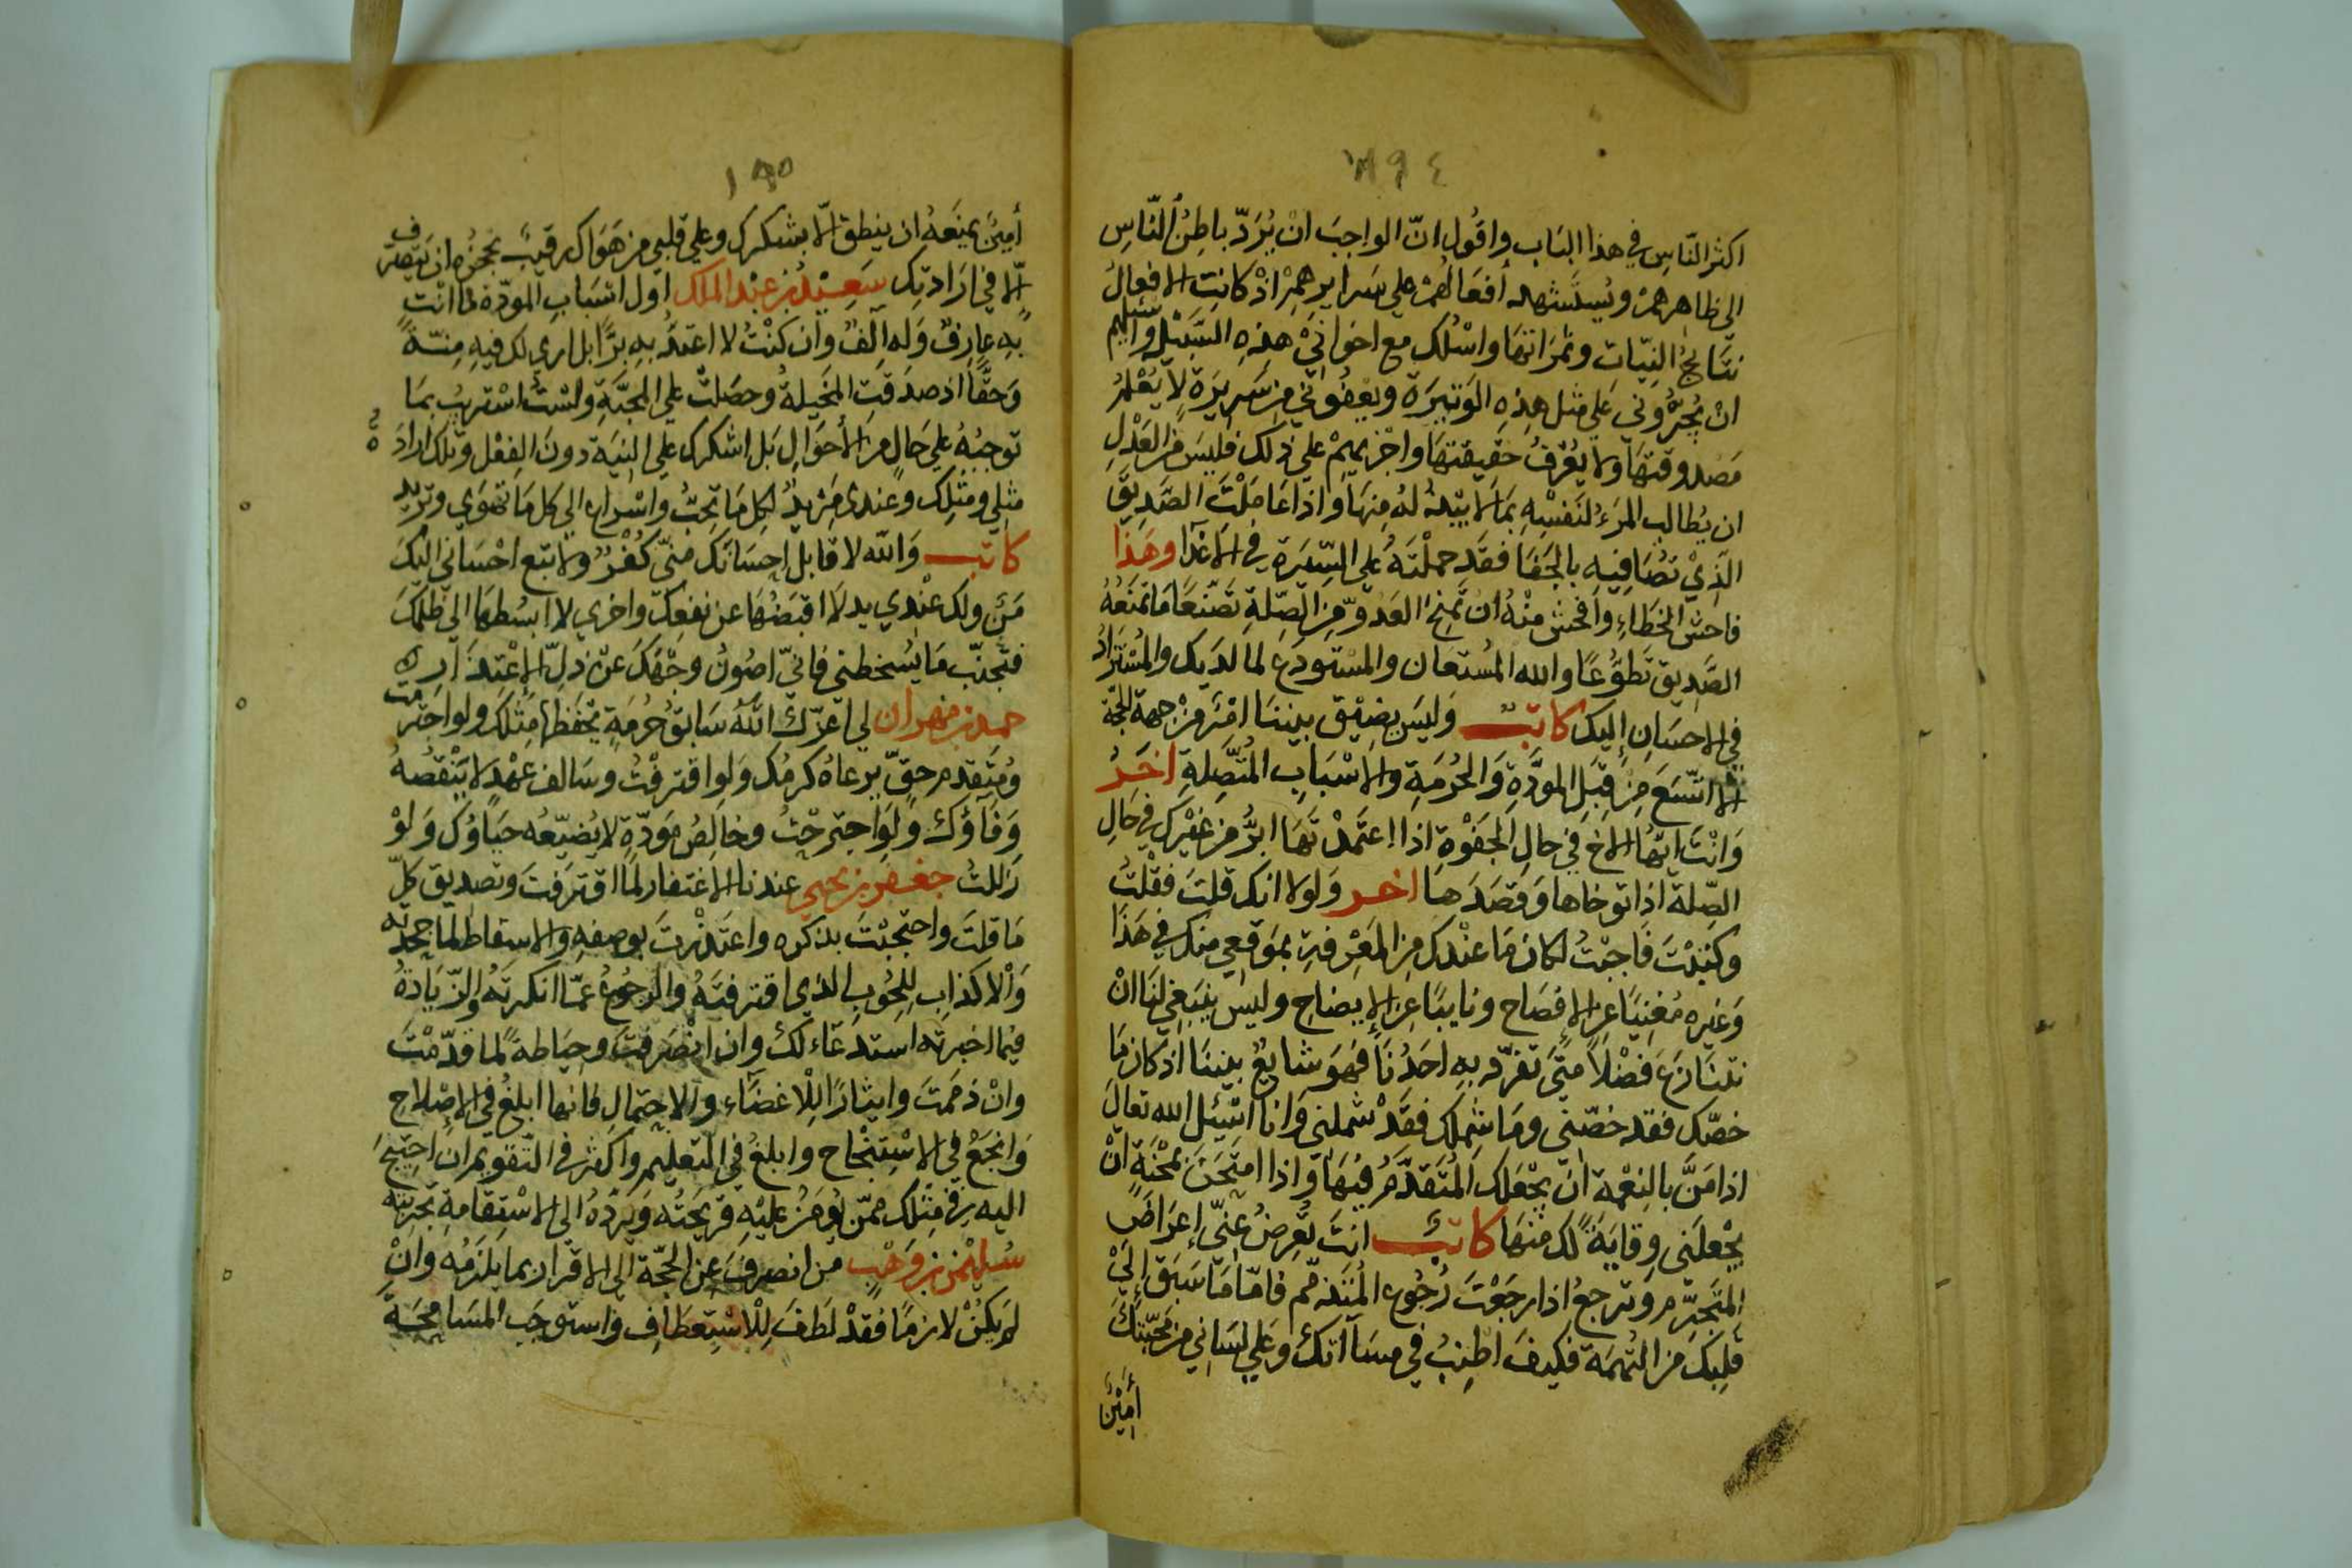 ١٩٤
اكثر النّاسِ في هذا البَاب واقُول انّ الواجبَ انْ يُرَدّ باطِنُ النّاسِ
الي ظاهرهمْ ويُستَشهد أفعَالهُمْ علي سَرايرهمْ اذْ كانتِ الافعالُ
نتَايجُ النيّات وثمَراتهَا واسْلُك مع اخوَاني هذِهِ السَّبيْل واسئلهم
انْ يُجرُوني عَلي مثل هذِه الوَتيرَة ويعفُوني من سَريرَة لا يُعْلمُ
مَصدوقتهَا ولا يُعْرفُ حَقيقتهَا واجْزيهمْ علي ذلك فليسَ من العَدْلِ
ان يُطالب المرءُ لنَفسْهِ بمَا لا يَبْدلُهُ مِنهَا واذا عَامَلْتَ الصَّدِيقَ
الَّذِيْ تصَافيهِ بالجَفَا فقَد حملْتَهُ علي السّيرَة في الاعْدَا وهَذا
فاحش الخطاءِ وافحش منْهُ انْ تمنحَ العَدوّ مِن الصِّلةِ تَصَنّعًا مَا تمنَعُهُ
الصَّدِيق تَطوُّعًا والله المُستعَان والمسْتودَع لما لدَيك والمُسْتَزَادُ
في الاحسَانِ إليك كاتب وَليسَ بضيْق بيننَا امْرٌ من جهة الحجّة
الا اتّسَعَ مِن قِبَلِ المودَّةِ وَالحُرْمَةِ والاسْبَاب المُتَّصِلةِ اخرُ
وَانْتَ ايّهَا الاخ في حالِ الجَفوَة اذا اعتَمدْتهَا ابرُّ من غيْرك في حَالِ
الصِّلة اذا توخاها وَقصَدَهَا اخر وَلولا انك قلتَ فقُلتُ
وكتبْتَ فَاجبْتُ لكان مَا عنْدك مِن المعْرفةِ بمَوقعِي منك في هَذا
وَغيره مُغنيًا عن الافصَاح ونايبًا عن الإيضاح وليسَ ينبَغي لنَا انْ
نتنَازَعَ فضْلاً مَتَى تفرّد بهِ احَدُنَا فهَوَ شايعٌ بيننَا اذ كان مَا
خصّك فقد خصّني ومَا شملك فقَدْ شملني وَانا اسئل الله تعالَي
اذا مَنَّ بالنِعْمة انْ يجْعَلك المُتَقدّمُ فيهَا واذا امتَحَن بمحْنَةٍ انْ
يجْعلَني وقايَةً لك منْهَا كاتب انتَ تُعرضُ عنّي اعرَاضَ
المتَجرّم وترجعُ اذا رجَعْتَ رُجُوع المُتَذمّم فامّا مَا سَبَقَ إليْ
قلبكَ من التُّهمَة فكيفَ اطنبُ في مسَاءَتكَ وَعلي لسَاني من محبّتكَ
أمينٌ
١٩٥
أمينٌ يمنَعهُ ان ينطق الّا بشكرك وعلي قلبي من هَوَاك رقيبٌ يحجزُه ان يَتصرّف
الّا في ارَادتك سَعِيْدُ بن عبْد الملك اول اسْبَابِ المودّة لما انْتَ
بهِ عارفٌ وَله آلفٌ وان كنْتُ لا اعتدُّ بهِ برًّا بل اري لك فيه مِنّةً
وَحقًّا اذ صدَقَتِ المخيلةُ وحصَلتْ علي المحبَّةِ ولسْتُ استريبُ بمَا
توجبُهُ علي حَالٍ من الأحوَالِ بَل اشكرك علي النيَة دونَ الفِعْل وتلك ارادَة
مثلي ومثلك وعندى مَزيدٌ لكل مَا تحبُّ واسْراع الي كل مَا تهوَي وتريد
كاتب وَالله لا قابل احسَانَك منّي كفْرٌ ولا تبع احْسَاني اليكَ
مَنٌّ ولك عنْدي يد لَا اقبَضُهَا عن نفعِكَ واخري لا ابسُطهَا الي ظلمكَ
فتَجنّب مَا يُسخطني فانيّ اصُونُ وجْهَكَ عنْ ذلِّ الإعتذَارِ
حمد بن مهران لي اعزّك اللهُ سَابقُ حُرمَةٍ يحفَظهَا مثلكَ ولو اجترمت
ومُتَقدم حقّ يرعَاهُ كرمُك وَلو اقترفْتُ وسَالف عهْدٍ لا يَنْقصُهُ
وَفَآؤك وَلوَ اجترحْتُ وخالِصُ مَودّةٍ لا يُضَيّعُه حيَاؤُكَ وَلوْ
زللتُ جعفر بن يحيي عندنا الاغتفار لمَا اقترَفتَ وتصديق كلّ
مَا قلتَ واحتججْتَ بذكره واعتَذرْتَ بوصفهِ وَالاسقاط لما جحدته
وَالاكذاب للحُوب الذي اقترفتَهُ والرجوُعُ عمّا انكرتَهُ والزّيَادَةُ
فيمَا اخبرته استدعَاء لك وان انْصَرفتَ وحيَاطةً لما قدّمْتَ
وانْ ذممتَ وايثارًا للاغضَاء والاحتمالِ فانها ابلغُ في الإصْلاح
وَانجَعُ في الاسْتنجْاح وابلغُ في التَعليم واكثر في التّقويم ان احتيجَ
اليه في مثلك ممّن يُومَنُ عليْهِ قريحَتُه وَيَردُهُ الي الاسْتِقامةِ تجربتُه
سُليْمن بن وَهْب من انصرفَ عن الحجّة الي الاقرار بما يلزَمُه وانْ
لمَ يكنْ لازمًا فقدْ لَطفَ لِلْاسْتِعطَافِ واستوجَب المسَامحَةَ